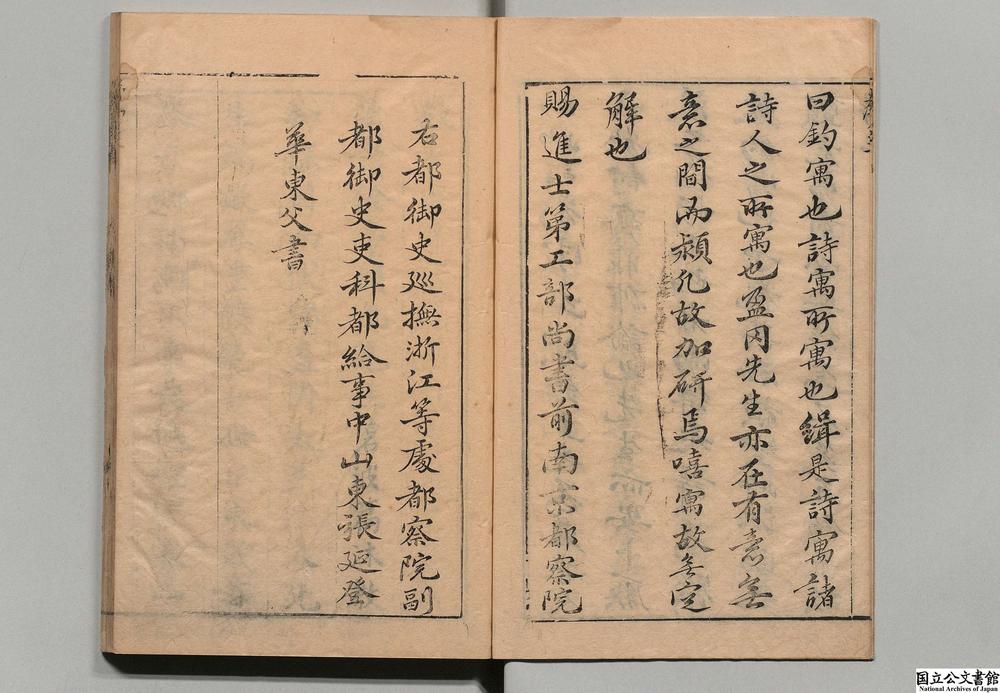 曰釣寓也詩寓所寓也緝是詩寓諸
詩人之所寓也盈囦先生亦在有意無
意之間而頰凡故加研焉嘻寓故無定
解也
賜進士第工部尚書前南京都察院
右都御史廵撫浙江等處都察院副
都御史吏科都給事中山東張延登
華東父書
国立公文書館
National Archives of Japan